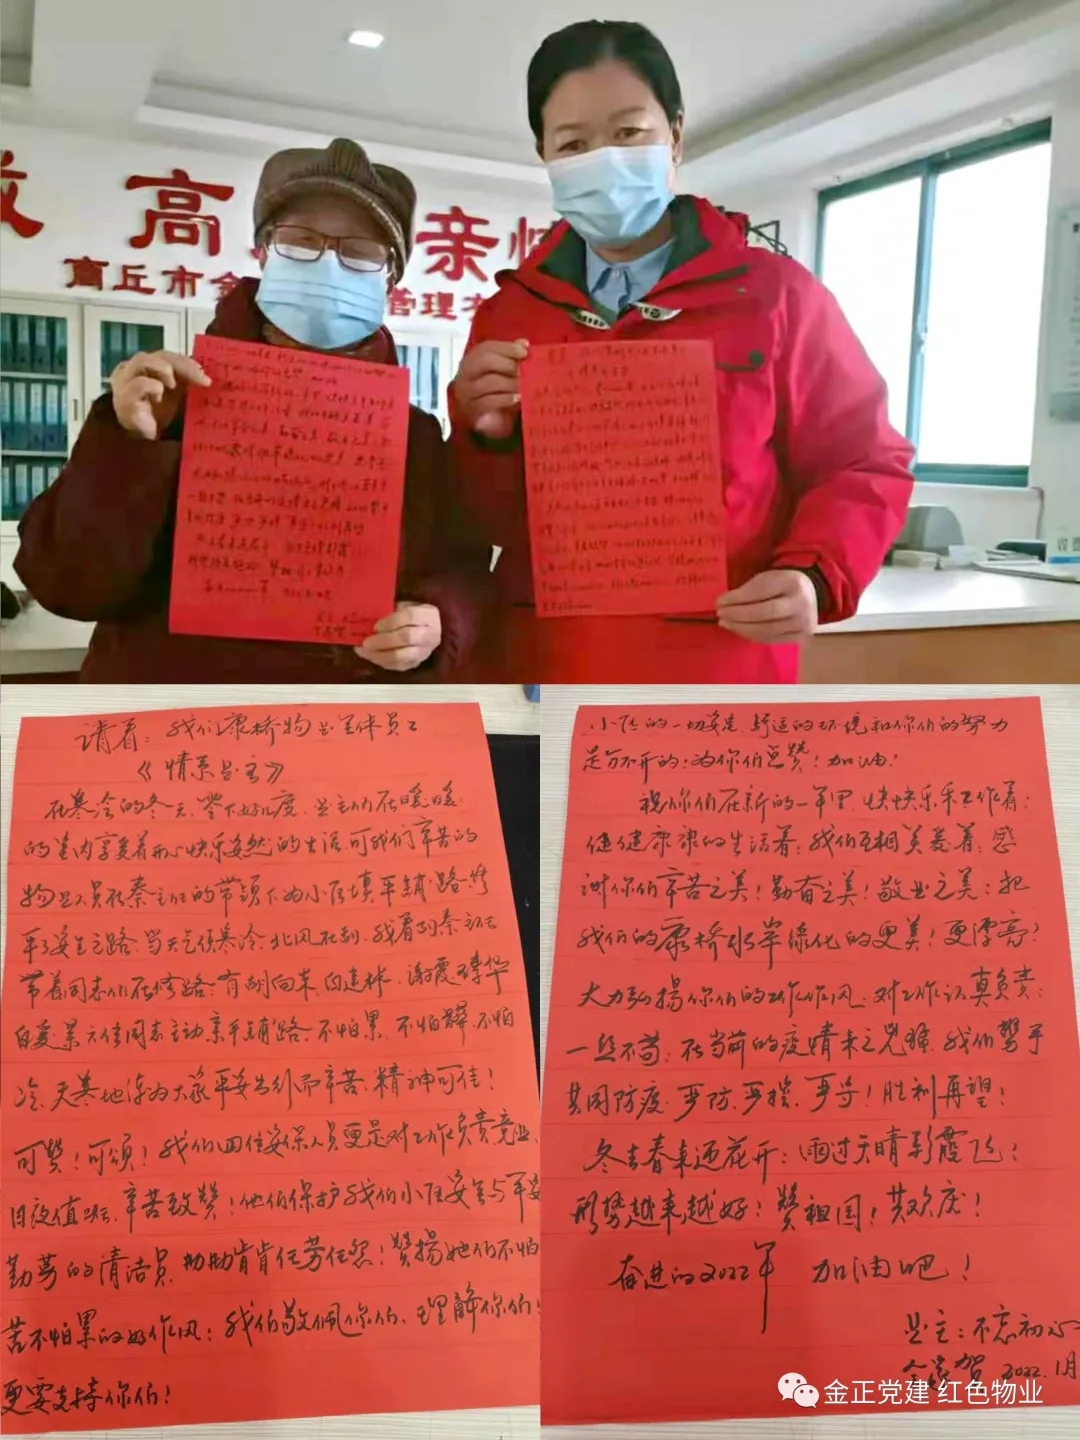 高
亲情
商丘市金
管理有
请看：我们康桥物业全体员工
《情系业主》
在寒冷的冬天，零下好几度，业主们在暖暖
的室内享受着开心快乐安然的生活，可我们辛苦的
物业人员在秦主任的带领下为小区填平铺路，修
平了安全之路，当天气候寒冷，北风在刮，我看到秦主任
带着同志们在修路；有胡向来，
主动
平铺路，不怕累，不怕脏，不怕
冷，天寒地冻为大家平安出行而辛苦，精神可佳！
可赞！可颂！我们四住安保人员更是对工作负责竞业，
日夜值班、辛苦致赞！他们保护我们小区安全与平安
勤劳的清洁员，勤勤肯肯任劳任怨！赞扬她们不怕
苦不怕累的好作风；我们敬佩你们、理解你们！
更要支持你们！
小区的一切安是，舒适的环境和你们的努力
是分不开的；为你们点赞！加油！
祝你们在新的一年里，快快乐乐工作着；
健健康康的生活着；我们互相关爱着；感
谢你们辛苦之美！勤奋之美！敬业之美；把
我们的康桥水岸绿化的更美！更漂亮？
大力弘扬你们的工作作风、对工作认真负责；
一丝不苟；在当前的疫情来之兇猛，我们攀手
共同防疫，严防、严控、严守！胜利再望！
冬去春来迎花开；雨过天晴彩霞飞；
形势越来越好！赞祖国！共欢庆！
奋进的2022年 加油吧！
业主：不忘初心
贺 2022.1月
金正党建 红色物业